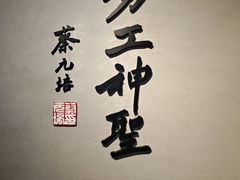 工神聖
蔡元培